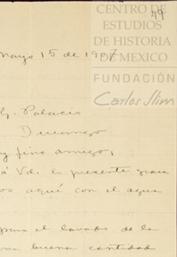 CENTRO DE
ESTUDIOS
DE HISTORIA
DE MEXICO
FUNDACIÓN
Carlos Slim
49
Mayo 15 de 19
Palacio
Durango
fino amigo,
á Vd. la presente para
aquí con el agua
para el lavado de la
una buena cantidad